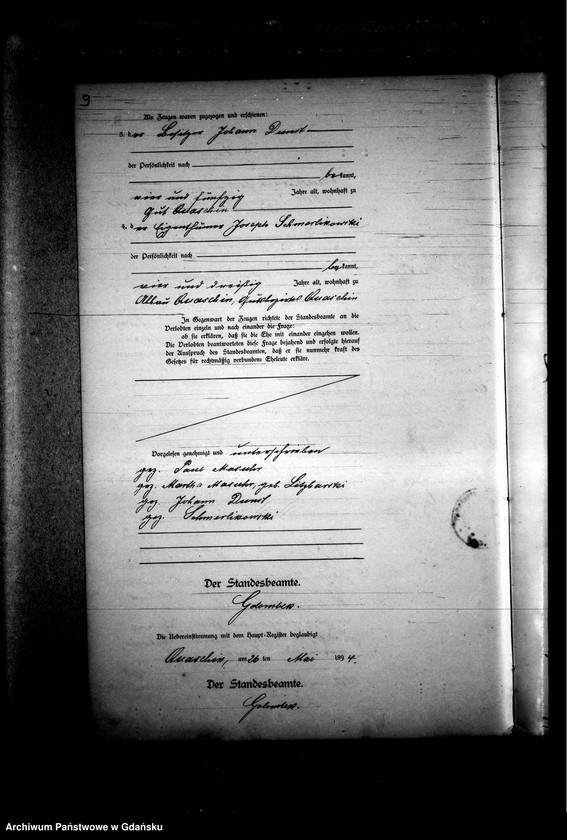 9
Als Zeugen waren zugezogen und erschienen:
3. der Besitzer Johann Dunst
der Persönlichkeit nach
bekannt,
vier und fünfzig Jahre alt, wohnhaft zu
Gut Quaschin
4. der Eigenthümer Joseph Schmerlikowski
der Persönlichkeit nach
bekannt,
vier und dreißig Jahre alt, wohnhaft zu
Abbau Quaschin, Gutsbezirk Quaschin
In Gegenwart der Zeugen richtete der Standesbeamte an die
Verlobten einzeln und nach einander die Frage:
ob sie erklären, daß sie die Ehe mit einander eingehen wollen.
Die Verlobten beantworteten diese Frage bejahend und erfolgte hierauf
der Ausspruch des Standesbeamten, daß er sie nunmehr kraft des
Gesetzes für rechtmäßig verbundene Eheleute erkläre.
Vorgelesen genehmigt und unterschrieben
gez. Paul
gez. Martha geb.
gez. Johann Dunst
gez. Schmerlikowski
Der Standesbeamte.
Golombek.
Die Uebereinstimmung mit dem Haupt-Register beglaubigt
Quaschin, am 26 ten Mai 1894.
Der Standesbeamte.
Golombek.
Archiwum Państwowe w Gdańsku